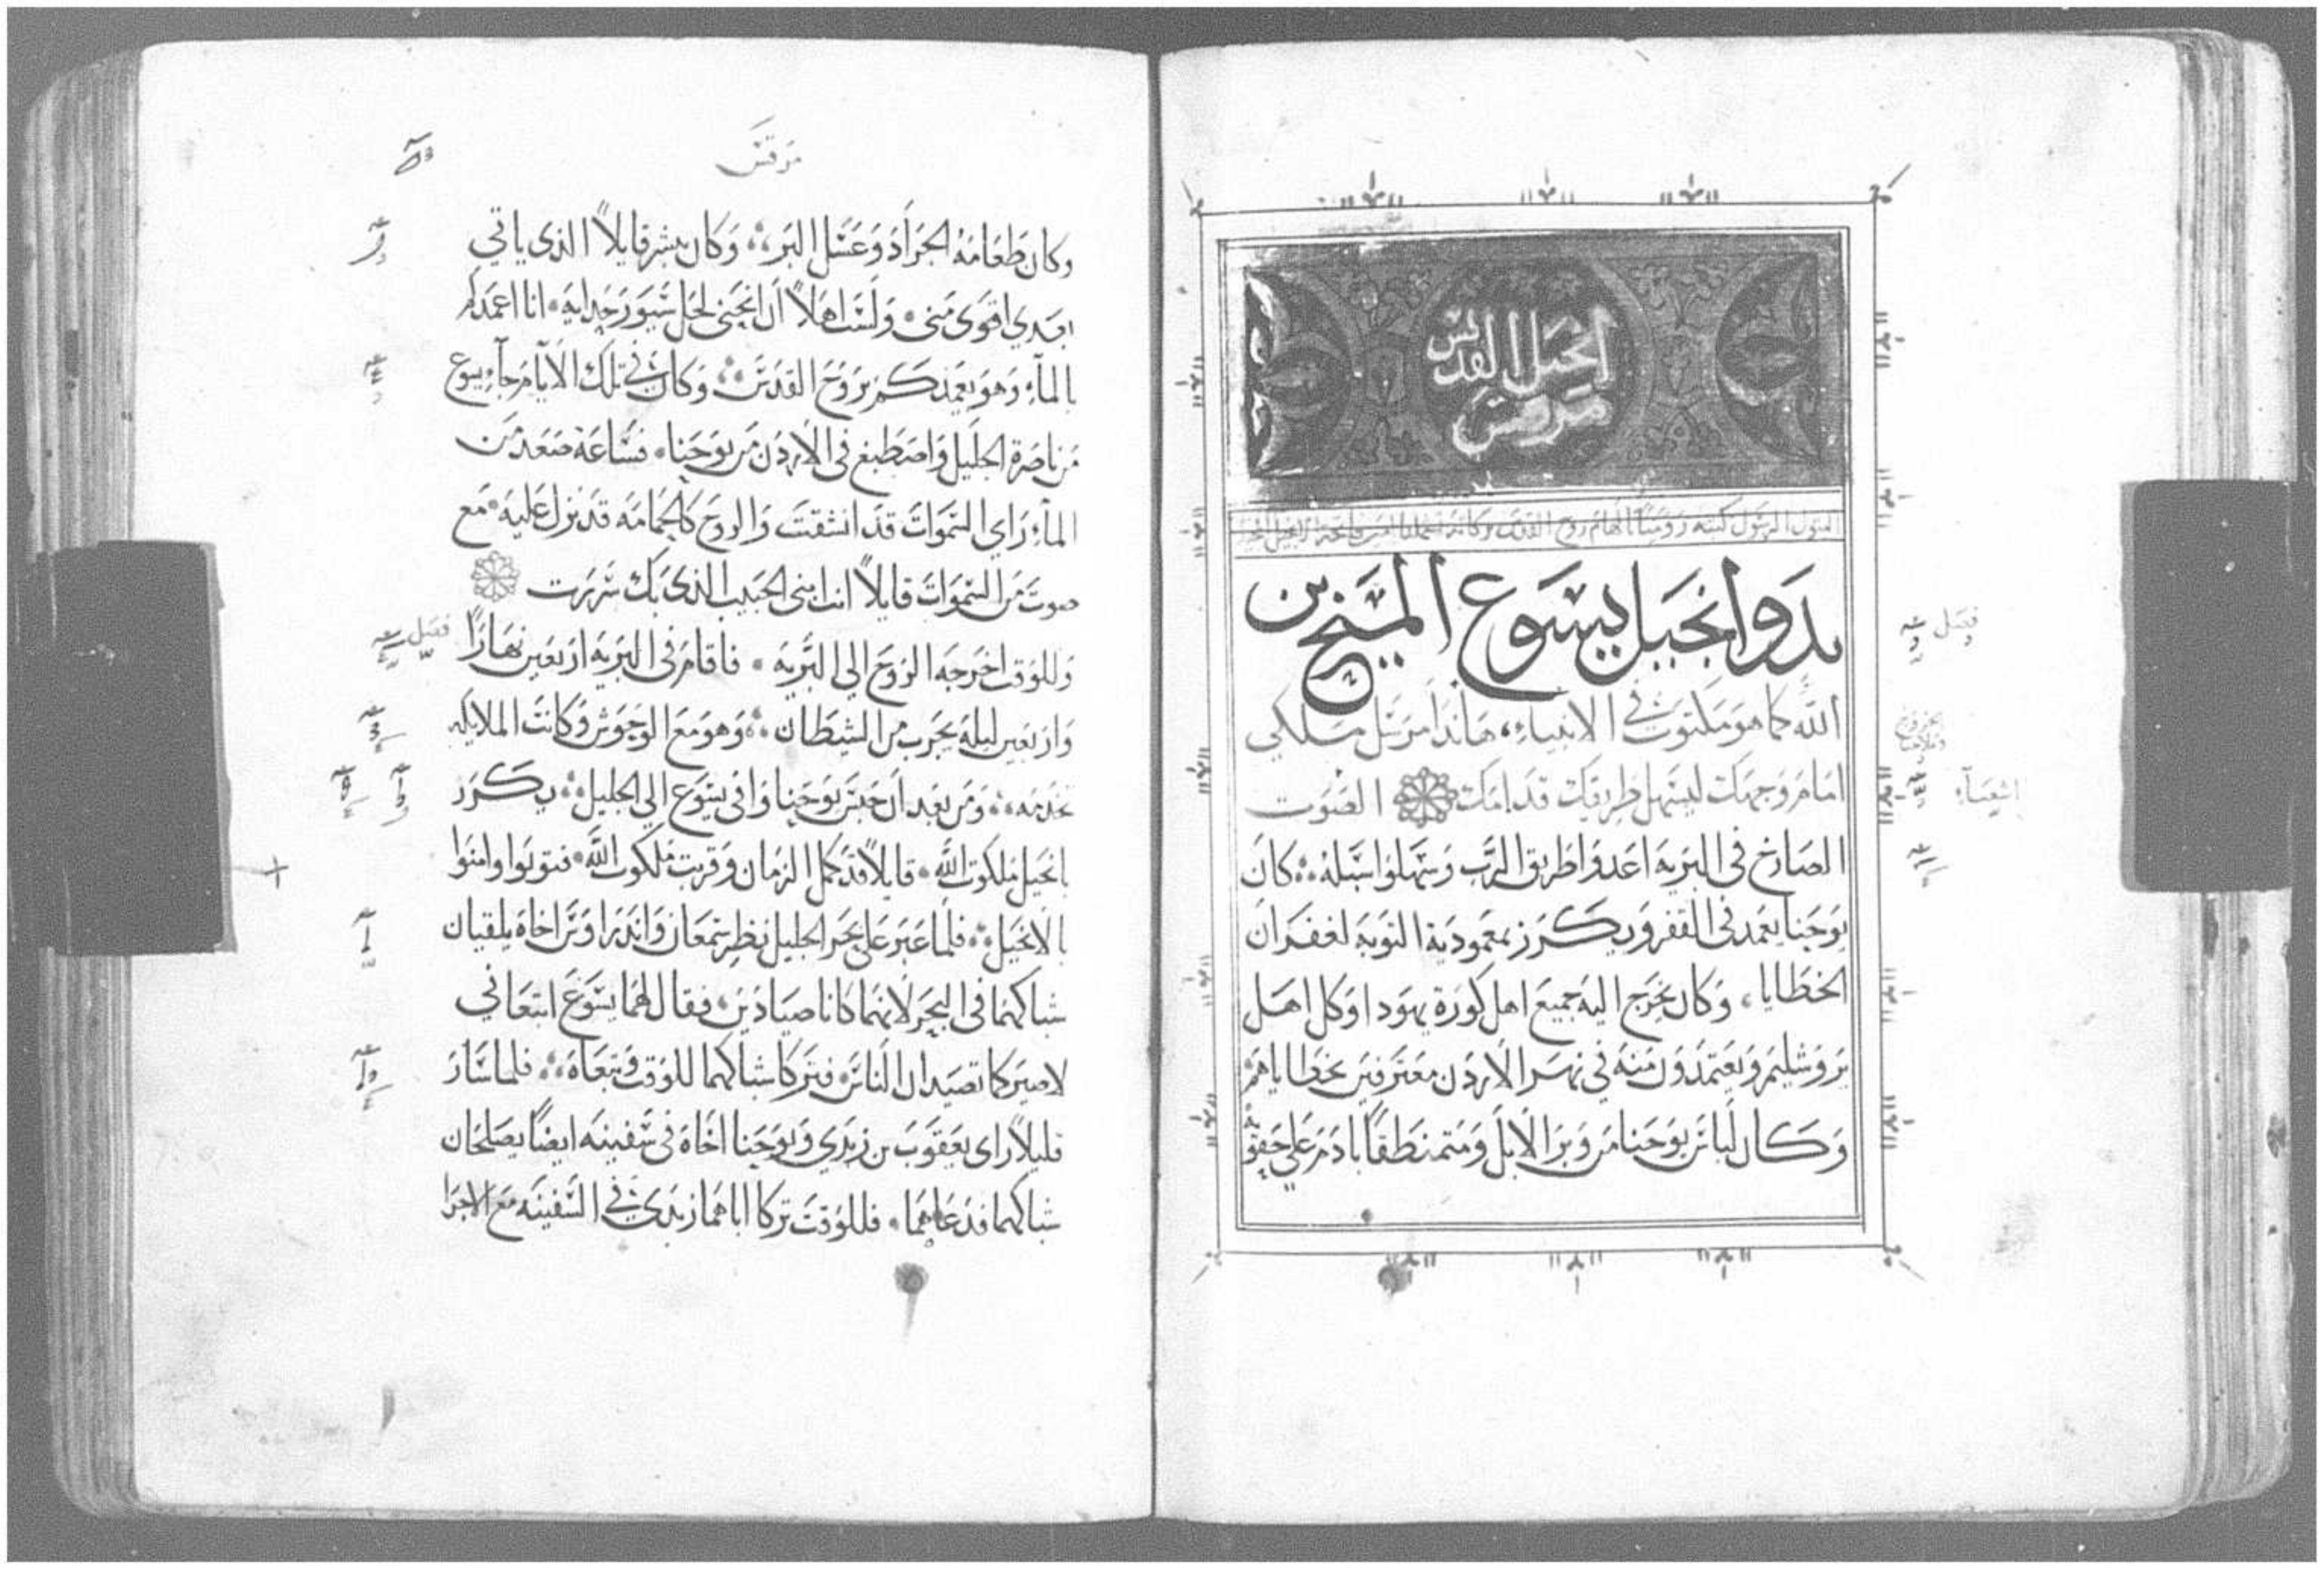 انجيل القديس
مرقس
البتول الرسول كتبه بالهام روح القدس
بدو انجيل يسوع المسيح بن
الله كما هو مكتوب في الانبياء، هانذا مرسل ملكي
امام وجهك ليسهل طريقك قدامك الصوت
الصارخ في البريه اعدوا طريق الرب وسهلوا سبله كان
يوحنا يعمد في القفر ويكرز بمعمودية التوبه لغفران
الخطايا، وكان يخرج اليه جميع اهل كورة يهودا وكل اهل
يروشليم ويعتمدون منه في نهر الاردن معترفين بخطاياهم
وكان لباس يوحنا من وبر الابل ومتمنطقاً بادم على حقوه
فصل
اشعياء
مرقس
وكان طعامه الجراد وعسل البر وكان يبشر قايلاً الذي ياتي
بعدي اقوى مني ولست اهلاً ان انحني لحل سيور حدايه انا اعمدكم
بالماء وهو يعمدكم بروح القدس وكان في تلك الايام جاء يسوع
من ناصرة الجليل واصطبغ في الاردن من يوحنا فساعة صعد من
الماء راي السموات قد انشقت والروح كالحمامه قد نزل عليه مع
صوت من السموات قايلاً انت ابني الحبيب الذي بك سررت
وللوقت اخرجه الروح الى البريه فاقام في البريه اربعين نهاراً
فصل
واربعين ليله يجرب من الشيطان وهو مع الوحوش وكانت الملايكه
تخدمه ومن بعد ان حبس يوحنا وافى يسوع الى الجليل يكرز
بانجيل ملكوت الله قايلاً قد كمل الزمان وقربت ملكوت الله فتوبوا وامنوا
بالانجيل فلما عبر على بحر الجليل نظر سمعان واندراوس اخاه يلقيان
شباكهما في البحر لانهما كانا صيادين فقال لهما يسوع اتبعاني
لاصيركما تصيدان الناس فتركا شباكهما للوقت وتبعاه فلما سار
قليلاً راى يعقوب بن زبدي ويوحنا اخاه في سفينه ايضاً يصلحان
شباكهما فدعاهما فللوقت تركا اباهما زبدى في السفينه مع الاجرا